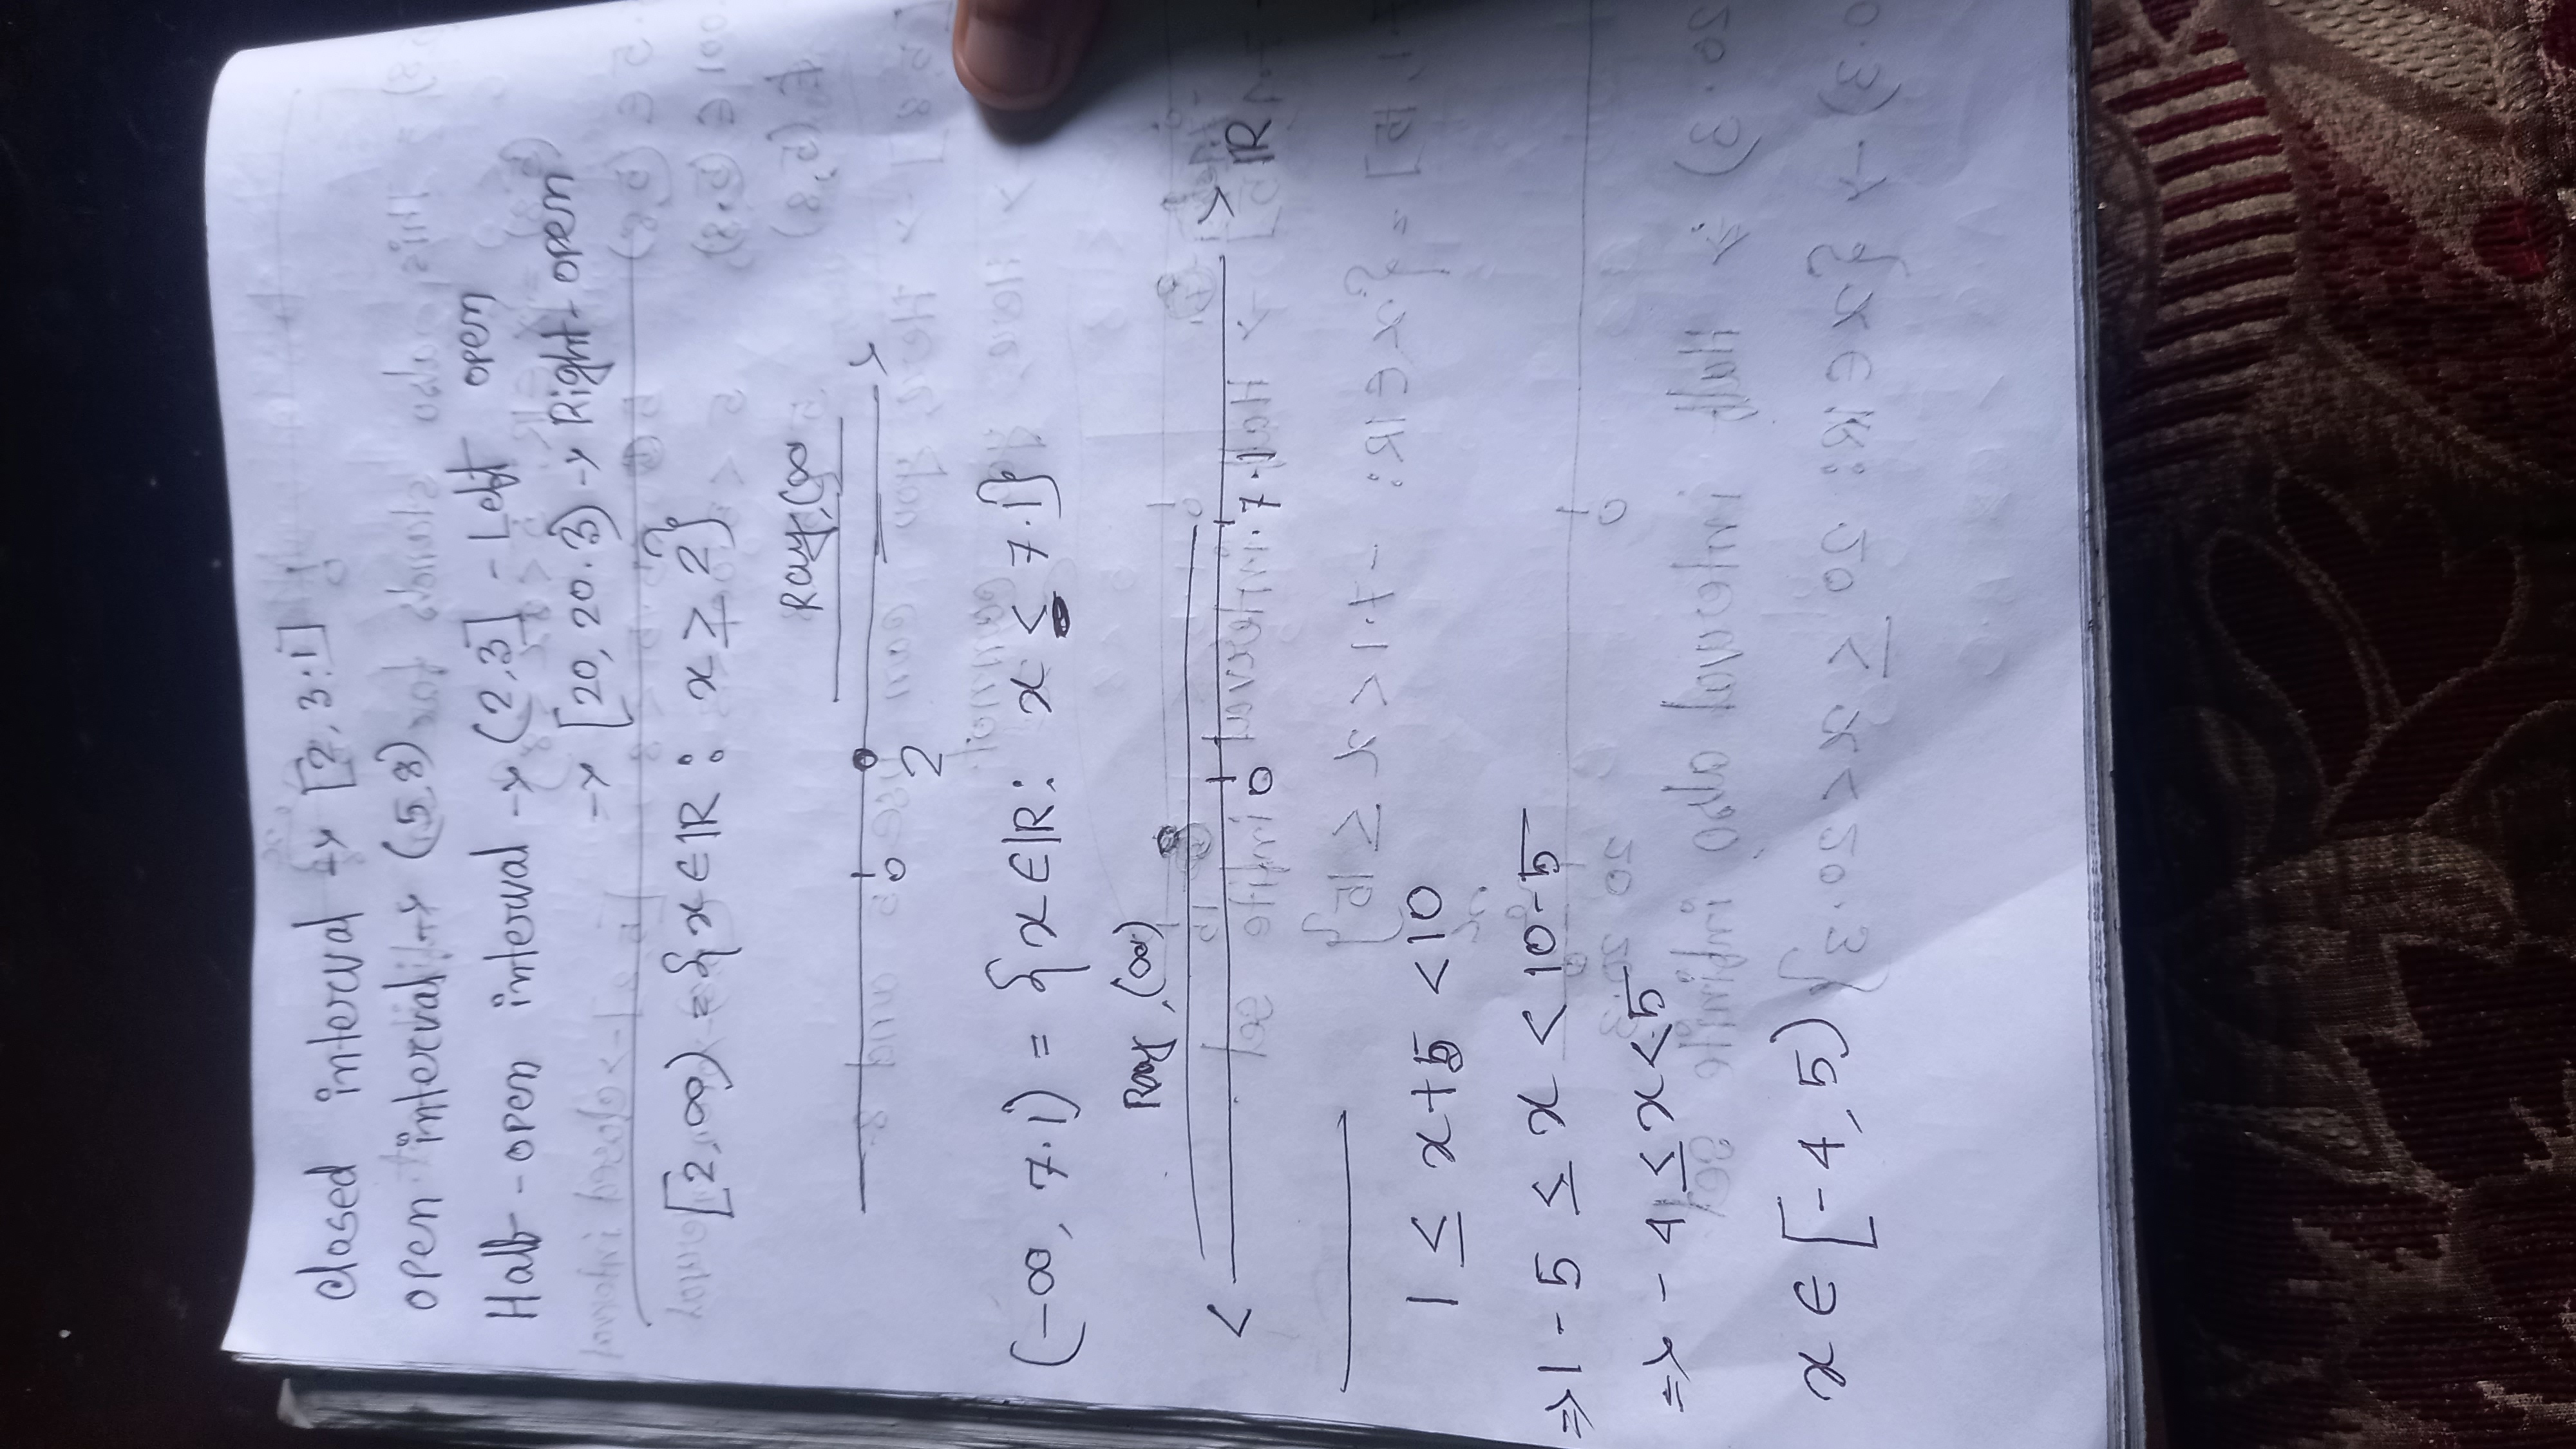 closed interval → [2, 3.1]
open interval → (5,8)
Half-open interval → (2,3] - Left open
→ [20, 20.3) → Right-open
[2, ∞) = {x ∈ ℝ : x ≥ 2}
Ray, (∞
0
2
(-∞, 7.1) = {x ∈ ℝ : x ≤ 7.1}
Ray, (∞)
0 7.1 ℝ
1 ≤ x+5 < 10
⇒ 1 - 5 ≤ x < 10-5
⇒ - 4 ≤ x < 5
x ∈ [-4, 5)